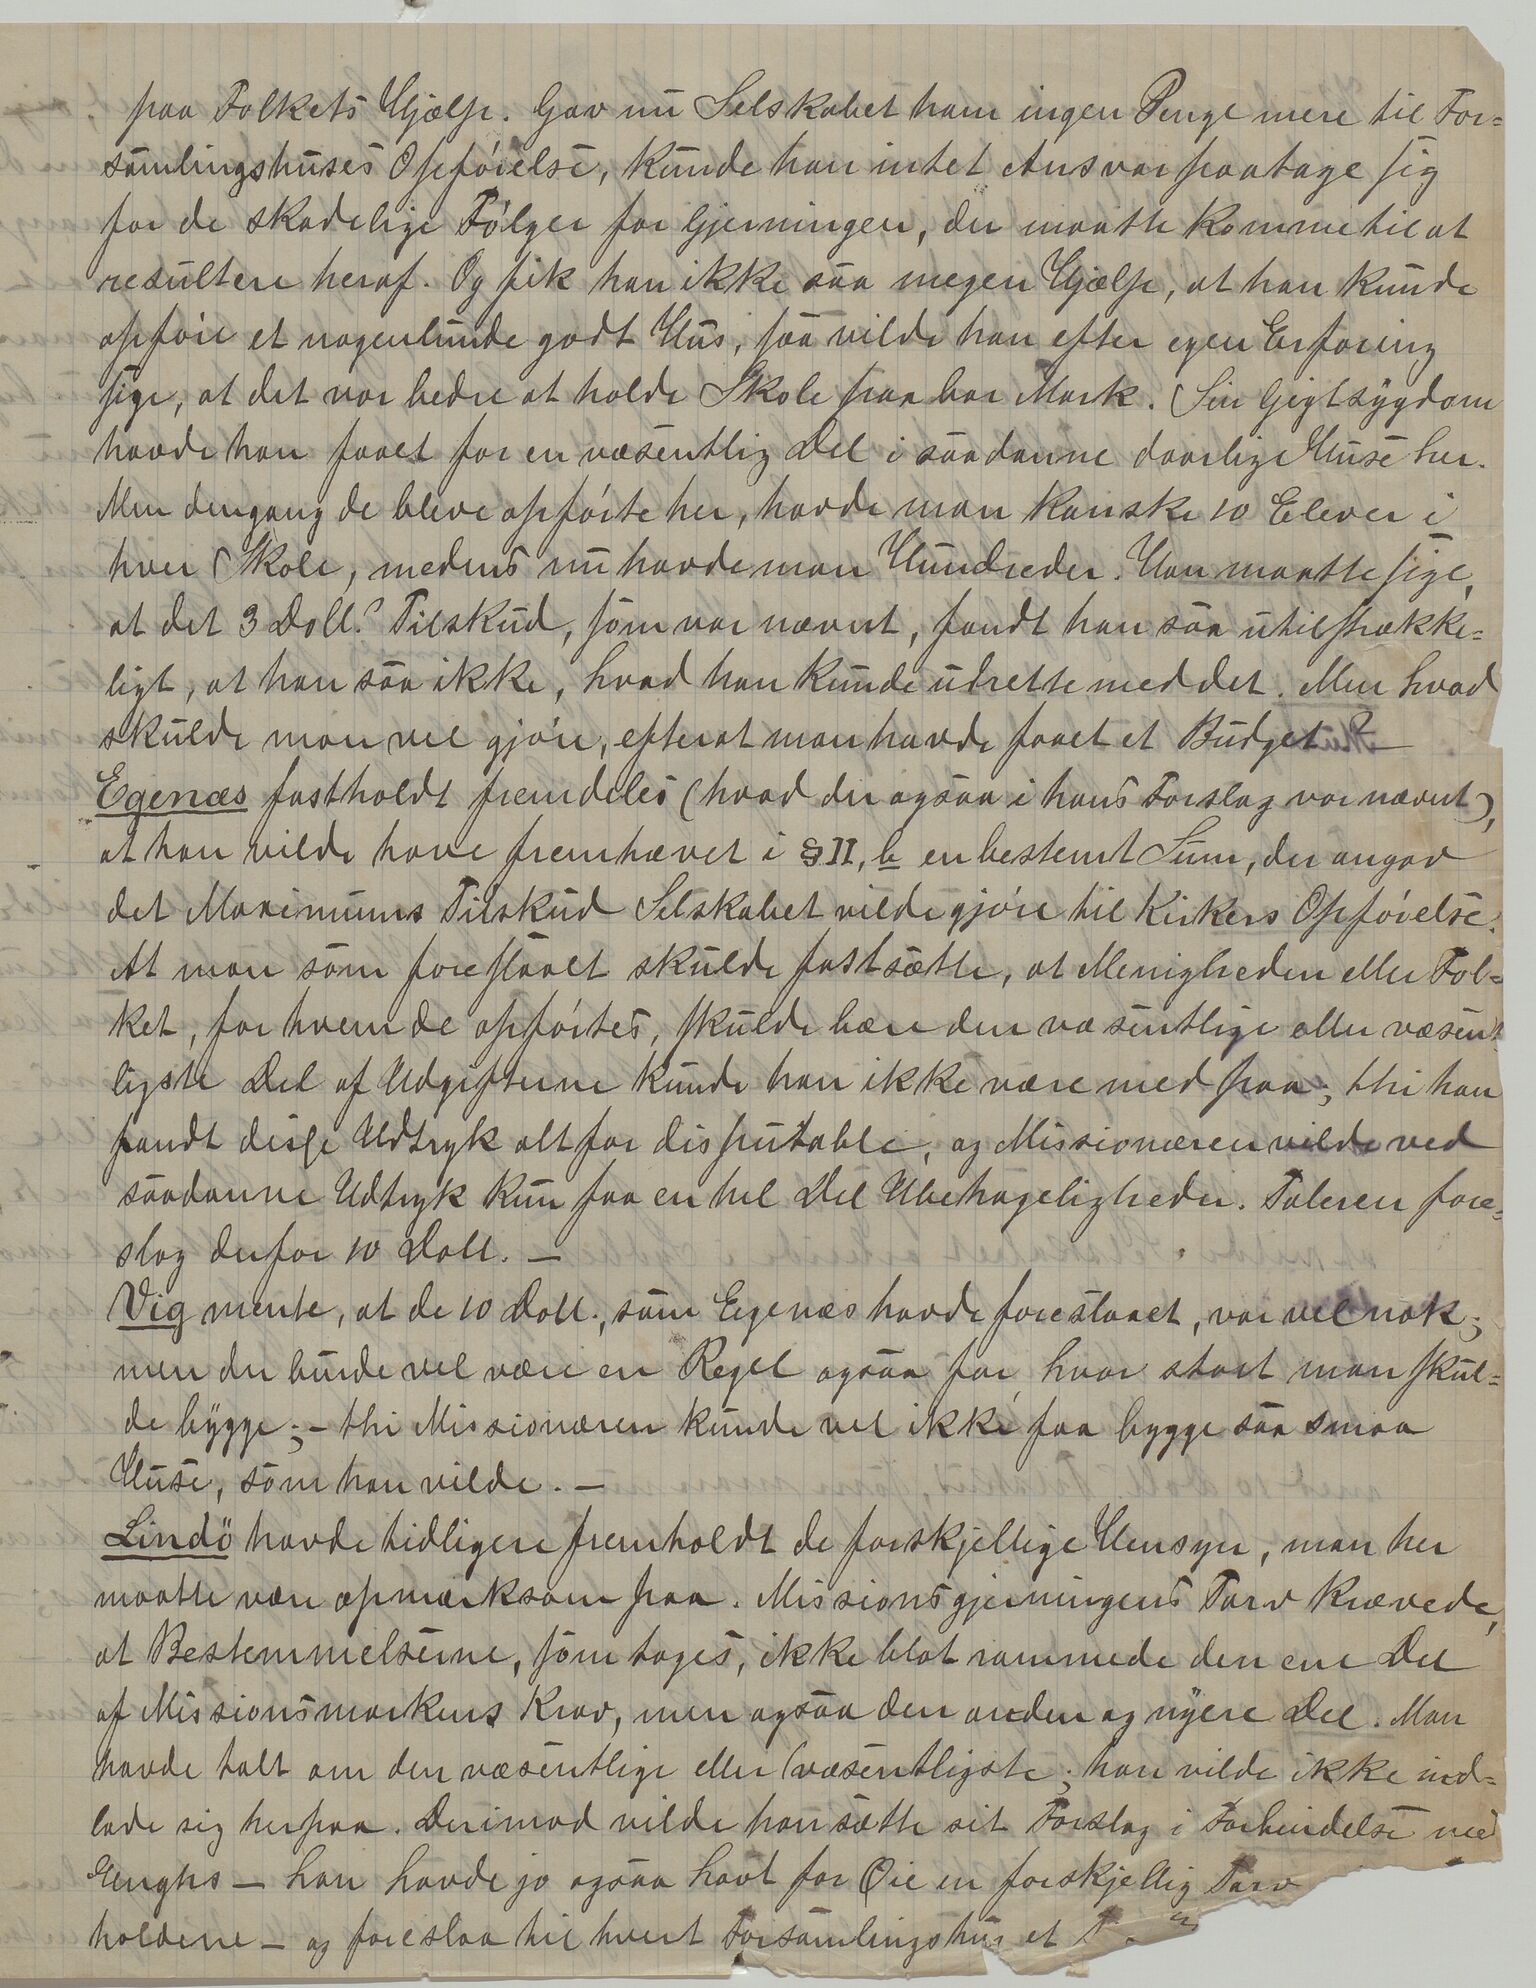 paa Folkets Hjælp. Gav nu Selskabet ham ingen Penge mere til For=
samlingshuses Opførelse, kunde han intet Ansvar paatage sig
for de skadelige Følger for Gjerningen, der maatte komme til at
resultere heraf. Og fik han ikke saa megen Hjælp, at han kunde
opføre et nogenlunde godt Hus, saa vilde han efter egen Erfaring
sige, at det var bedre at holde Skole paa bar Mark. Sin Gigtsygdom
havde han faaet for en væsentlig Del i saadanne daarlige Huse her.
Men dengang de bleve opførte her, havde man kanske 10 Elever i
hver Skole, medens nu havde man Hundreder. Han maatte sige,
at det 3 Doll.s Tilskud, som var nævnt, fandt han saa utilstrække=
ligt, at han saa ikke, hvad han kunde udrette med det. Men hvad
skulde man vel gjøre, efterat man havde faaet et Budget? —
Egenæs fastholdt fremdeles (hvad der ogsaa i hans Forslag var nævnt),
at han vilde have fremhævet i § II, b en bestemt Sum, der angav
det Maximums Tilskud Selskabet vilde gjøre til Kirkers Opførelse.
At man som foreslaaet skulde fastsætte, at Menigheden eller Fol=
ket, for hvem de opførtes, skulde bære den væsentlige eller væsent
ligste Del af Udgifterne kunde han ikke være med paa; thi han
fandt disse Udtryk altfor disputable, og Missionæren vilde ved
saadanne Udtryk kun faa en hel Del Ubehageligheder. Taleren fore=
slog derfor 10 Doll. —
Vig mente, at de 10 Doll., som Egenæs havde foreslaaet, var vel nok;
men der burde vel være en Regel ogsaa for hvor stort man skul=
de bygge; – thi Missionæren kunde vel ikke faa bygge saa smaa
Huse, som han vilde. —
Lindö havde tidligere fremholdt de forskjellige Hensyn, man her
maatte være opmærksom paa. Missionsgjerningens Tarv krævede,
at Bestemmelserne, som toges, ikke blot rammede den ene Del
af Missionsmarkens Krav, men ogsaa den anden og nyere Del. Man
havde talt om den væsentlige eller væsentligste; han vilde ikke ind=
lade sig herpaa. Derimod vilde han sætte sit Forslag i Forbindelse med
Enghs — han havde jo ogsaa havt for Øie en forskjellig Tarv
holdene — og foreslaa til hvert Forsamlingshus et